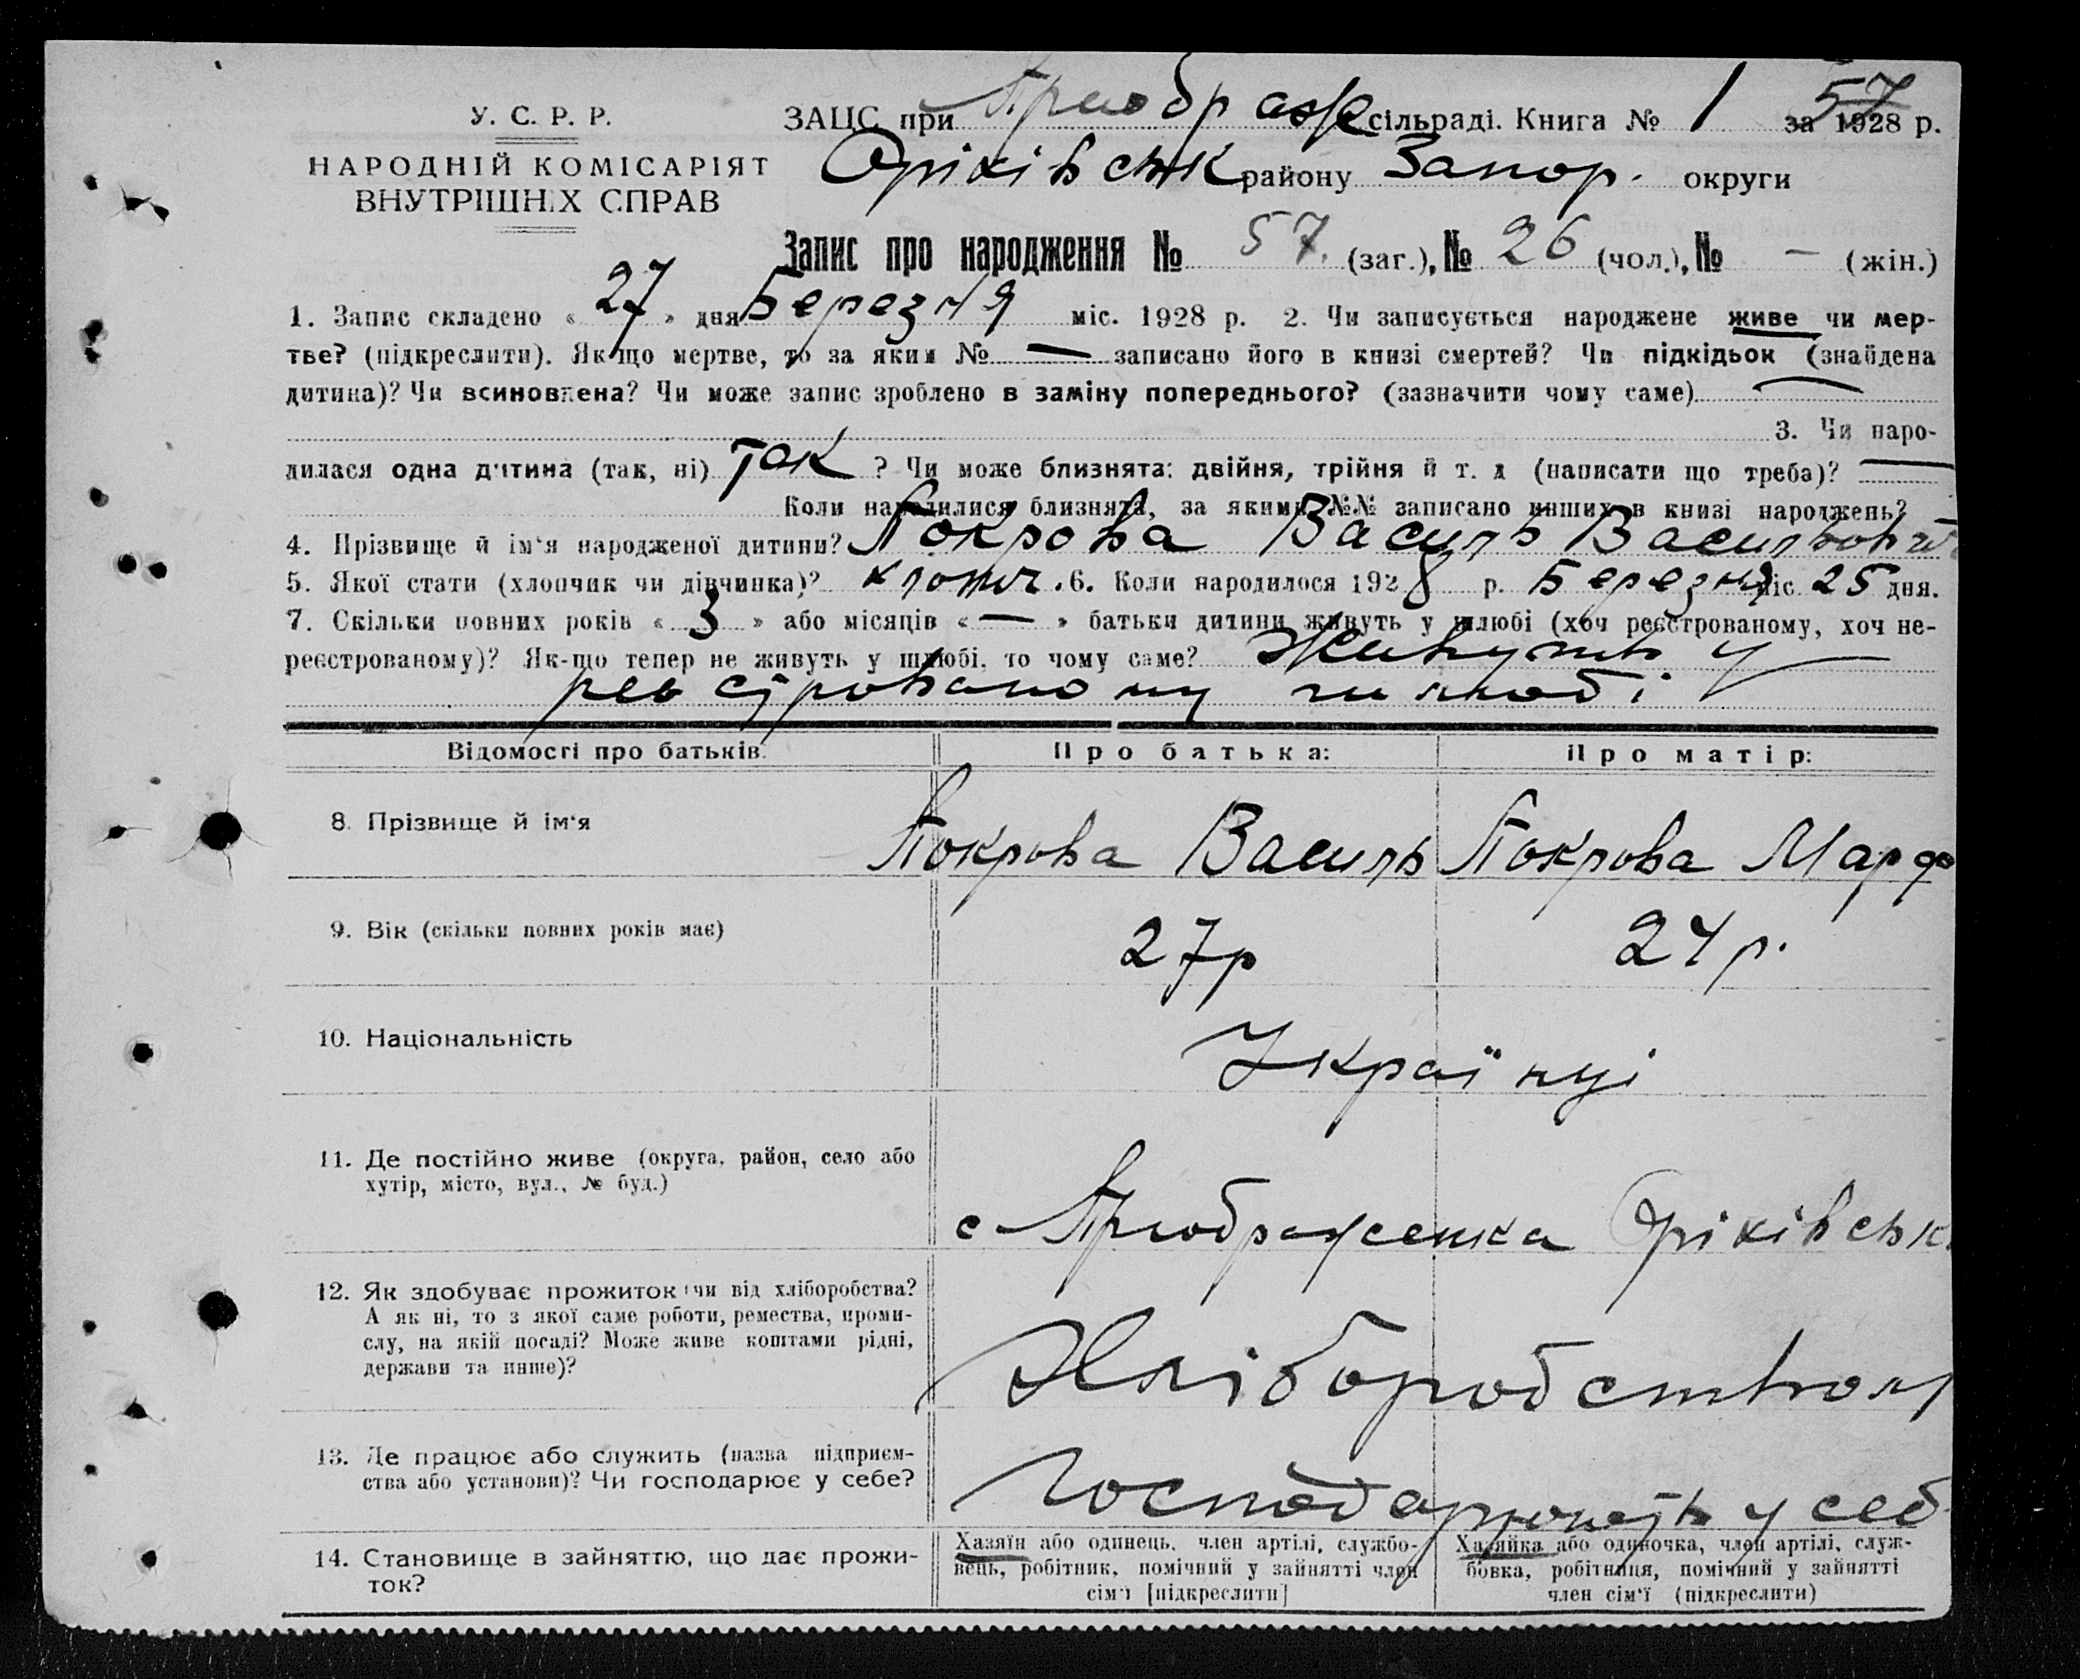 У. С. Р. Р.
НАРОДНІЙ КОМІСАРІЯТ
ВНУТРІШНІХ СПРАВ
ЗАЦС при Преображ сільраді. Книга № 1 за 1928 р.
57
Оріхівськ району Запор. округи
Запис про народження № 57. (заг.), № 26 (чол.), № — (жін.)
1. Запис складено « 27 » дня Березня міс. 1928 р. 2. Чи записується народжене живе чи мер-
тве? (підкреслити). Як-що мертве, то за яким № — записано його в книзі смертей? Чи підкідьок (знайдена
дитина)? Чи всиновлена? Чи може запис зроблено в заміну попереднього? (зазначити чому саме) —
3. Чи наро-
дилася одна дитина (так, ні) так ? Чи може близнята: двійня, трійня й т. д (написати що треба)? —
Коли народилися близнята, за якими №№ записано инших в книзі народжень?
4. Прізвище й ім'я народженої дитини? Покрова Василь Васильович
5. Якої стати (хлопчик чи дівчинка)? хлопч. 6. Коли народилося 1928 р. Березня міс 25 дня.
7. Скільки повних років « 3 » або місяців « — » батьки дитини живуть у шлюбі (хоч реєстрованому, хоч не-
реєстрованому)? Як-що тепер не живуть у шлюбі, то чому саме? Живуть у
реєстрованому шлюбі
Відомості про батьків: Про батька: Про матір:
8. Прізвище й ім'я Покрова Василь Покрова Марфа
9. Вік (скільки повних років має) 27р 24 р.
10. Національність Українці
11. Де постійно живе (округа, район, село або
хутір, місто, вул., № буд.)
с Преображенка Оріхівськ
12. Як здобуває прожиток (чи від хліборобства?
А як ні, то з якої саме роботи, ремества, проми-
слу, на якій посаді? Може живе коштами рідні,
держави та инше)?
Хліборобством
13. Де працює або служить (назва підприєм-
ства або установи)? Чи господарює у себе?
Господарюють у себ
14. Становище в зайняттю, що дає прожи-
ток?
Хазяїн або одинець, член артілі, службо-
вець, робітник, помічний у зайнятті член
сім'ї [підкреслити]
Хазяйка або одиночка, член артілі, служ-
бовка, робітниця, помічний у зайнятті
член сім'ї (підкреслити)